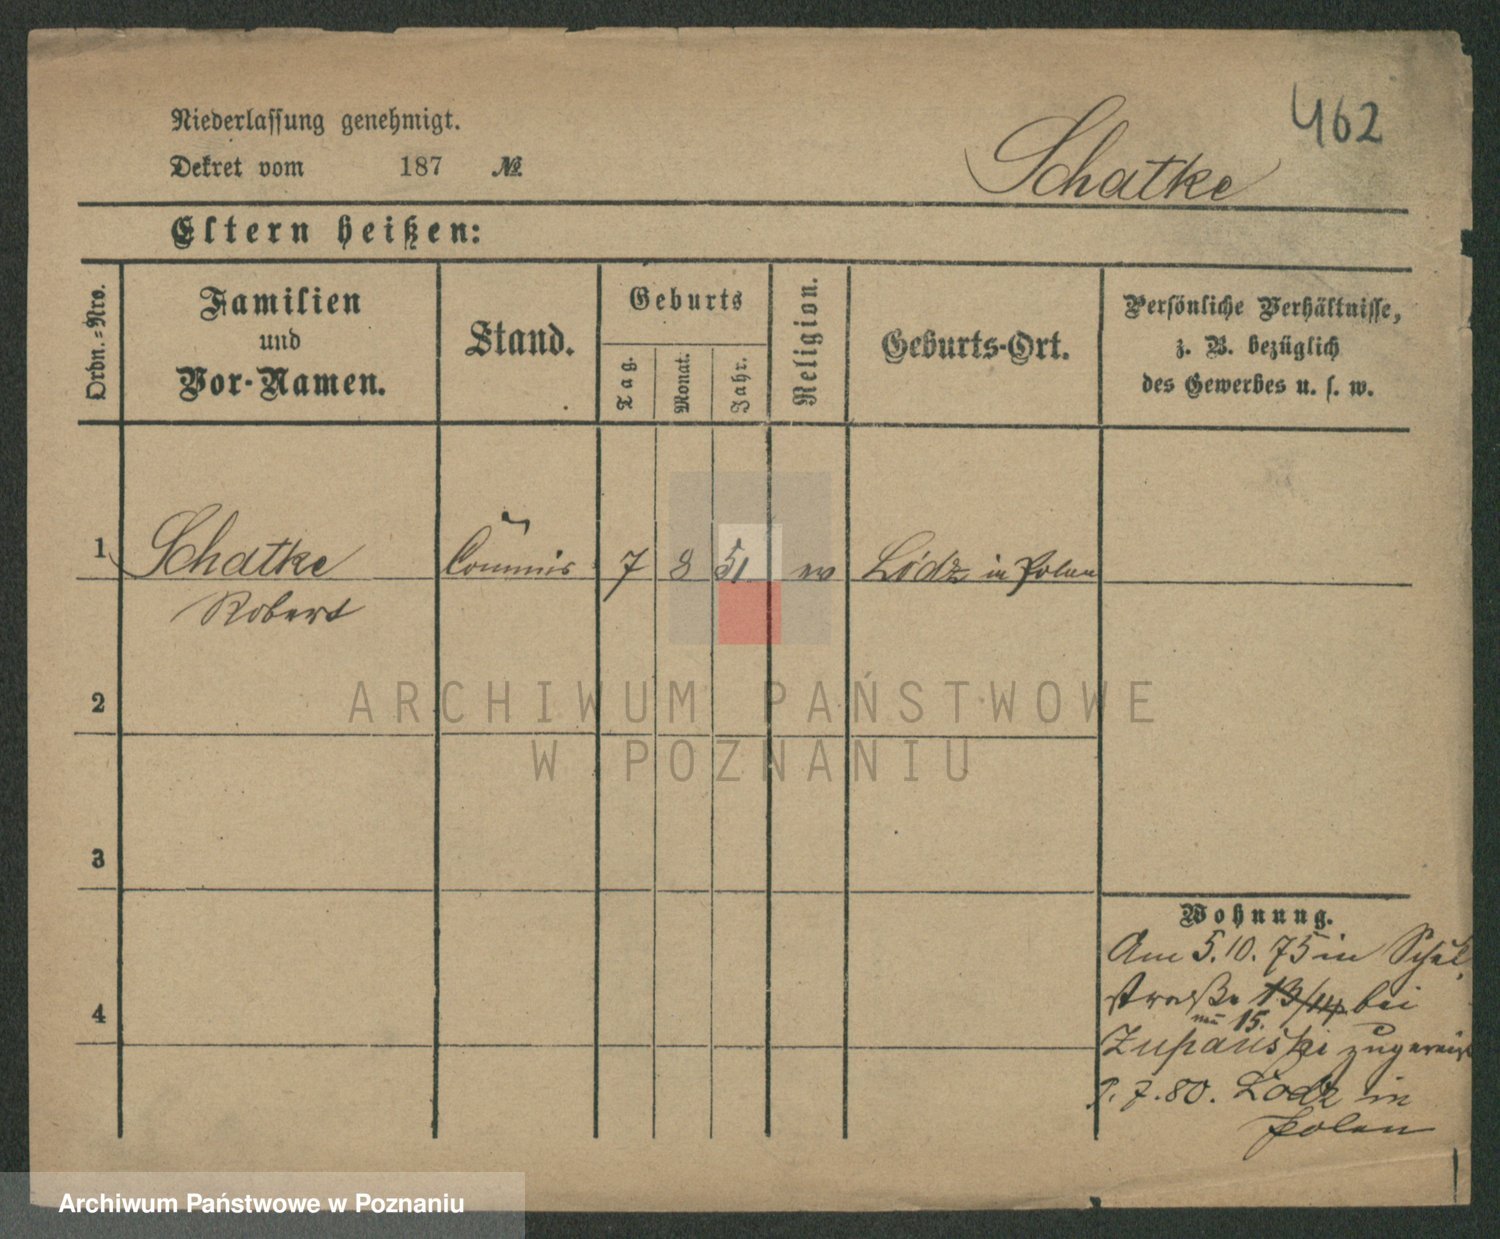 462
Niederlassung genehmigt.
Dekret vom 187 №
Schatke
Eltern heißen:
Ordn.-Nro.
Familien
und
Vor-Namen.
Stand.
Geburts
Tag.
Monat.
Jahr.
Religion.
Geburts-Ort.
Persönliche Verhältnisse,
z. B. bezüglich
des Gewerbes u. s. w.
1 Schatke Commis 7 8 51 ev Lódz in Polen
Robert
2
3
4
Wohnung.
Am 5.10.75 in Schul
straße 13/14 bei
neu 15.
Zupański zugereist
7.80. Lodz in
Polen
ARCHIWUM PAŃSTWOWE
W POZNANIU
Archiwum Państwowe w Poznaniu